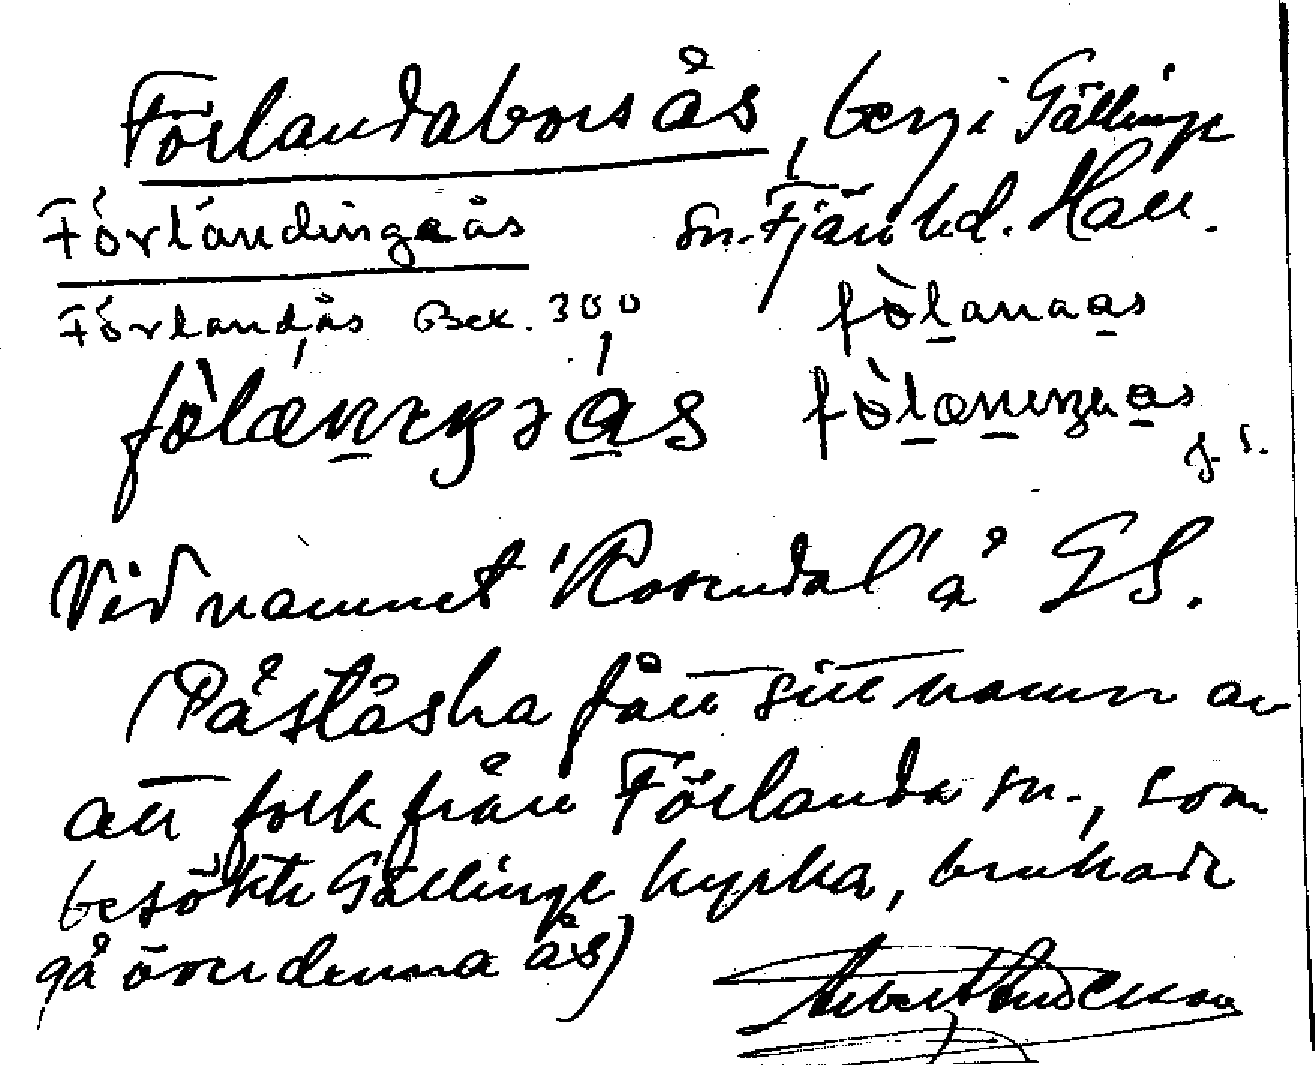 Förlandaborsås, berg i Gällinge
Förlandingaås sn. Fjäre hd. Hall.
Förlandås Bex. 300 fòlanaas
fòlænings ås fòlæningaas
Vid namnet 'Rosendal' å GS.
(Påstås ha fått sitt namn av
att folk från Förlanda sn., som
besökte Gällinge kyrka, brukade
gå över denna ås)